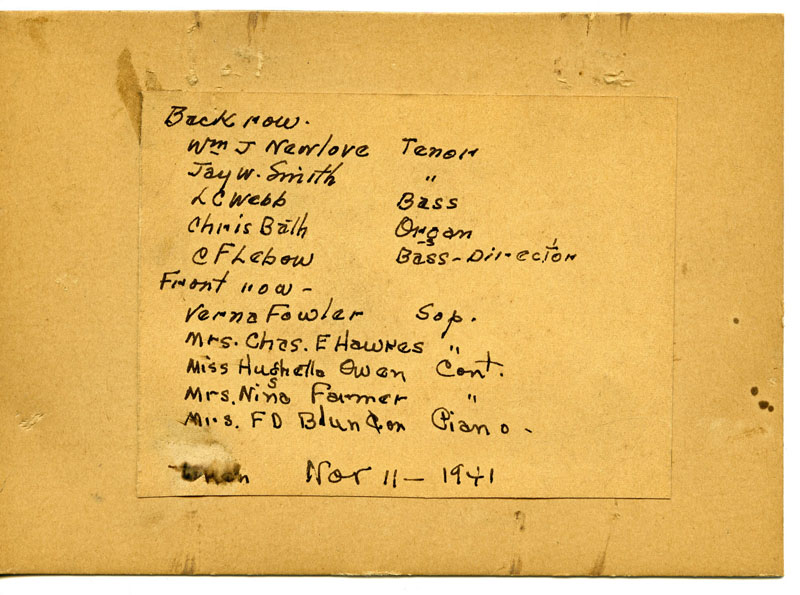 Back row.
Wm J Newlove Tenor
Jay W. Smith "
L C Webb Bass
Chris Bath Organ
C F Lebow Bass - Director
Front row -
Verna Fowler Sop.
Mrs. Chas. E Hawkes "
Miss Hughetta Owen Cont.
Mrs. Nina Farmer "
Mrs. F D Piano -
Nov 11 - 1941